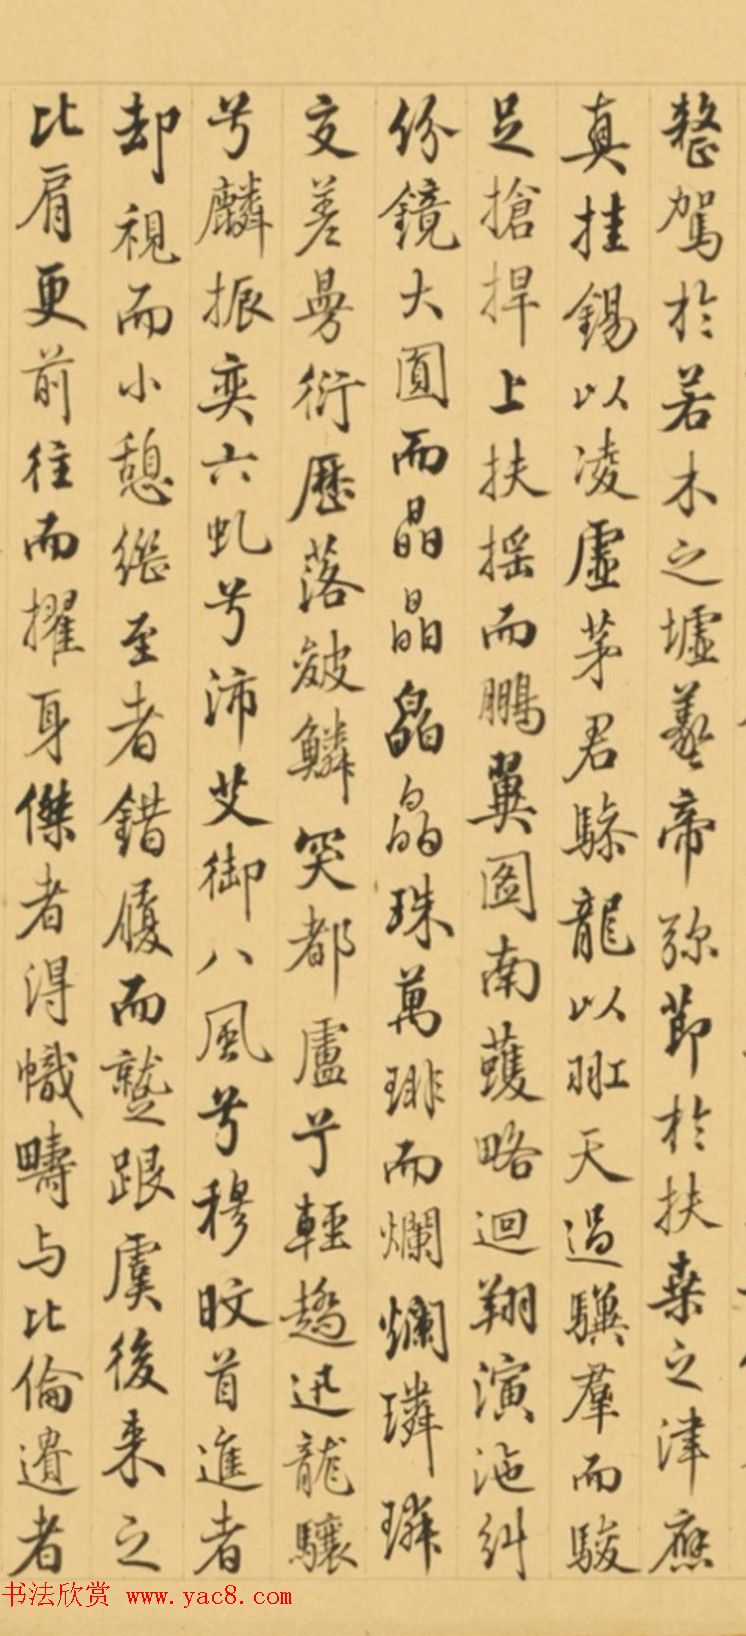 整駕於若木之墟羲帝弥節於扶桒之津應
真挂錫以凌虛茅君驂龍以羾天過驥羣而駿
足搶捍上扶摇而鵬翼圖南蒦略迴翔演迤糾
份鏡大圓而晶晶皛皛珠萬琲而爛爛璘璘
交差曼衍歷落皴鱗突都盧兮輕趫迅龍驤
兮麟振奕六虬兮沛艾御八風兮穆旼首進者
却視而小憩繼至者錯履而蹵跟虞後来之
比肩更前往而擢身傑者得幟疇与比倫遺者
书法欣赏 www.yac8.com